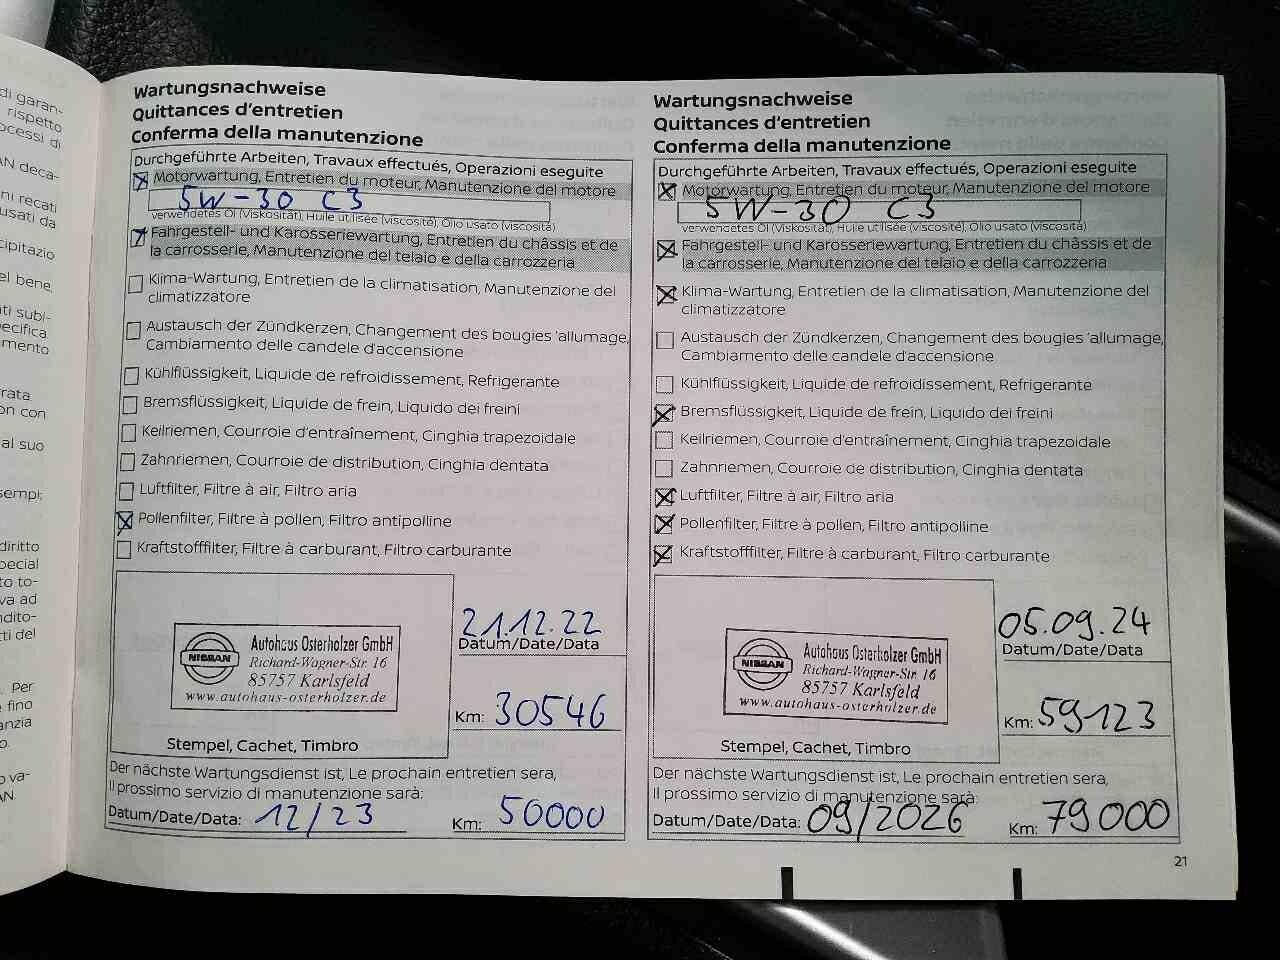 di garan-
rispetto
ocessi di
AN deca-
ni recati
usati da
cipitazio
el bene,
ti subi-
ecifica
mento
rata
on con
al suo
sempi:
diritto
pecial
to to-
va ad
ndito-
ti del
. Per
e fino
anzia
o.
o va-
AN.
Wartungsnachweise
Quittances d'entretien
Conferma della manutenzione
Durchgeführte Arbeiten, Travaux effectués, Operazioni eseguite
Motorwartung, Entretien du moteur, Manutenzione del motore
5W-30 C3
verwendetes Öl (Viskosität), Huile utilisée (viscosité), Olio usato (viscosità)
Fahrgestell- und Karosseriewartung, Entretien du châssis et de
la carrosserie, Manutenzione del telaio e della carrozzeria
Klima-Wartung, Entretien de la climatisation, Manutenzione del
climatizzatore
Austausch der Zündkerzen, Changement des bougies 'allumage,
Cambiamento delle candele d'accensione
Kühlflüssigkeit, Liquide de refroidissement, Refrigerante
Bremsflüssigkeit, Liquide de frein, Liquido dei freini
Keilriemen, Courroie d'entraînement, Cinghia trapezoidale
Zahnriemen, Courroie de distribution, Cinghia dentata
Luftfilter, Filtre à air, Filtro aria
Pollenfilter, Filtre à pollen, Filtro antipolline
Kraftstofffilter, Filtre à carburant, Filtro carburante
NISSAN
Autohaus Osterholzer GmbH
Richard-Wagner-Str. 16
85757 Karlsfeld
www.autohaus-osterholzer.de
Stempel, Cachet, Timbro
21.12.22
Datum/Date/Data
Km: 30546
Der nächste Wartungsdienst ist, Le prochain entretien sera,
Il prossimo servizio di manutenzione sarà:
Datum/Date/Data: 12/23 Km: 50000
Wartungsnachweise
Quittances d'entretien
Conferma della manutenzione
Durchgeführte Arbeiten, Travaux effectués, Operazioni eseguite
Motorwartung, Entretien du moteur, Manutenzione del motore
5W-30 C3
verwendetes Öl (Viskosität), Huile utilisée (viscosité), Olio usato (viscosità)
Fahrgestell- und Karosseriewartung, Entretien du châssis et de
la carrosserie, Manutenzione del telaio e della carrozzeria
Klima-Wartung, Entretien de la climatisation, Manutenzione del
climatizzatore
Austausch der Zündkerzen, Changement des bougies 'allumage,
Cambiamento delle candele d'accensione
Kühlflüssigkeit, Liquide de refroidissement, Refrigerante
Bremsflüssigkeit, Liquide de frein, Liquido dei freini
Keilriemen, Courroie d'entraînement, Cinghia trapezoidale
Zahnriemen, Courroie de distribution, Cinghia dentata
Luftfilter, Filtre à air, Filtro aria
Pollenfilter, Filtre à pollen, Filtro antipolline
Kraftstofffilter, Filtre à carburant, Filtro carburante
NISSAN
Autohaus Osterholzer GmbH
Richard-Wagner-Str. 16
85757 Karlsfeld
www.autohaus-osterholzer.de
Stempel, Cachet, Timbro
05.09.24
Datum/Date/Data
Km: 59123
Der nächste Wartungsdienst ist, Le prochain entretien sera,
Il prossimo servizio di manutenzione sarà:
Datum/Date/Data: 09/2026 Km: 79000
21